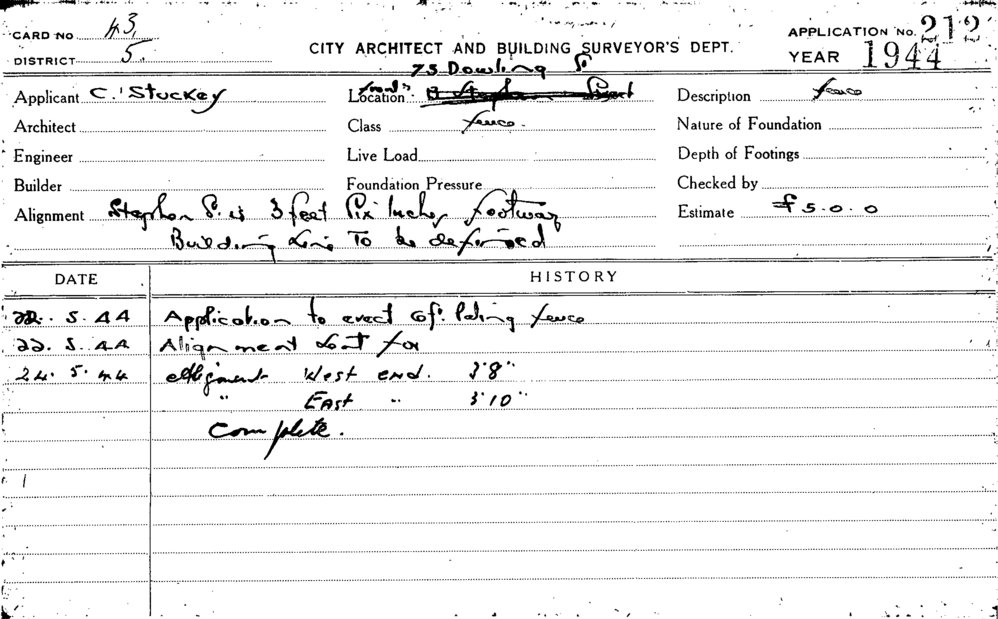 CARD NO 43
DISTRICT 5.
CITY ARCHITECT AND BUILDING SURVEYOR'S DEPT.
APPLICATION NO. 212
YEAR 1944
75 Dowling St
Applicant C. Stuckey
Location
Description fence
Architect
Class fence.
Nature of Foundation
Engineer
Live Load
Depth of Footings
Builder
Foundation Pressure
Checked by
Alignment Stephen St. is 3 feet Six Inches footway
Estimate £5.0.0
Building Line To be defined
DATE HISTORY
22. 5. 44 Application to erect 6ft. Paling fence
22. 5. 44 Alignment sent for
24. 5. 44 Alignment West end. 3'8"
" East " 3'10"
Complete.